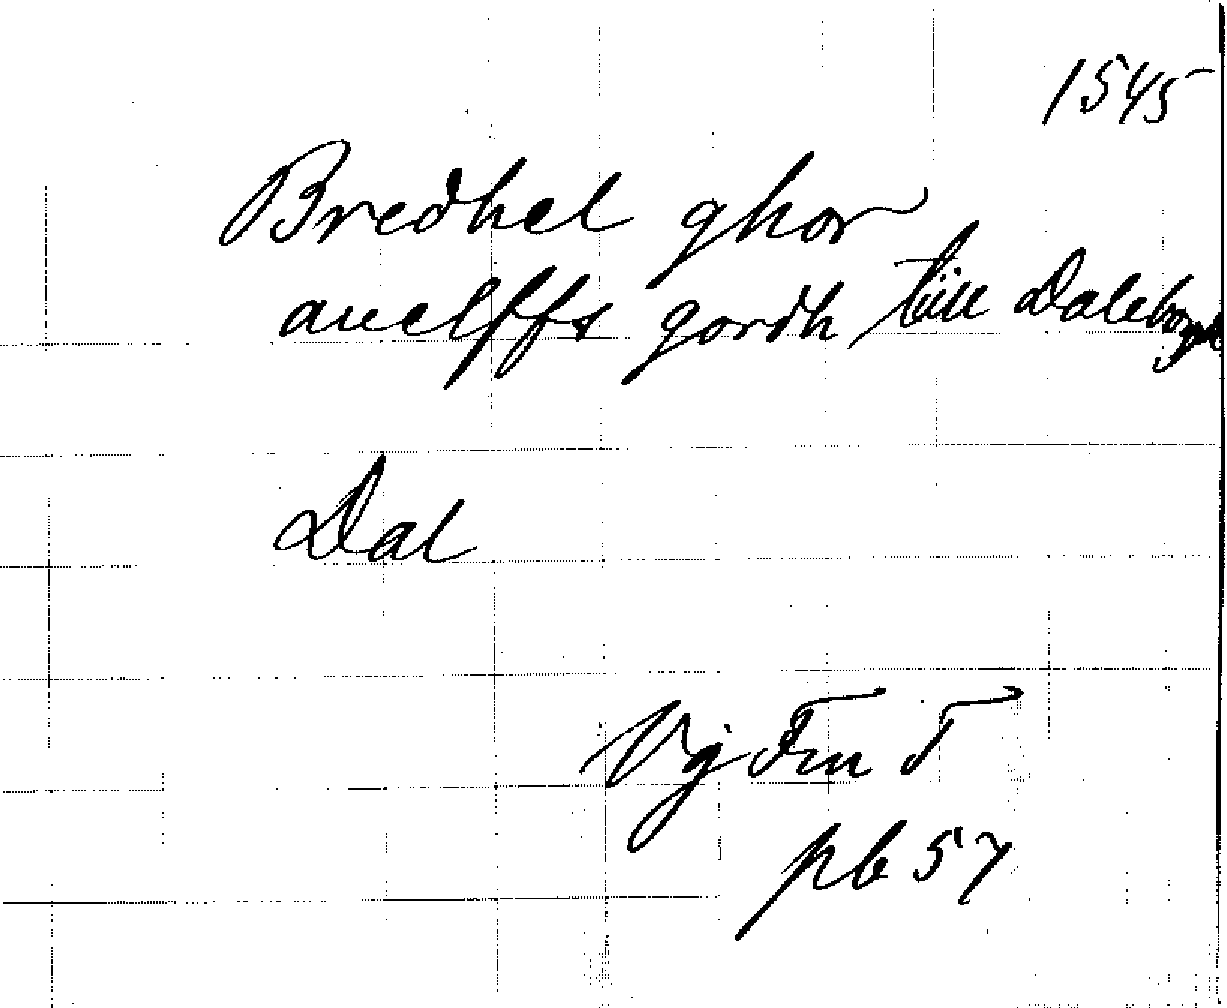 1545
Bredhel ghor
auelffs gordh till Daleborgh
Dal
Vg Fm T
pb 57